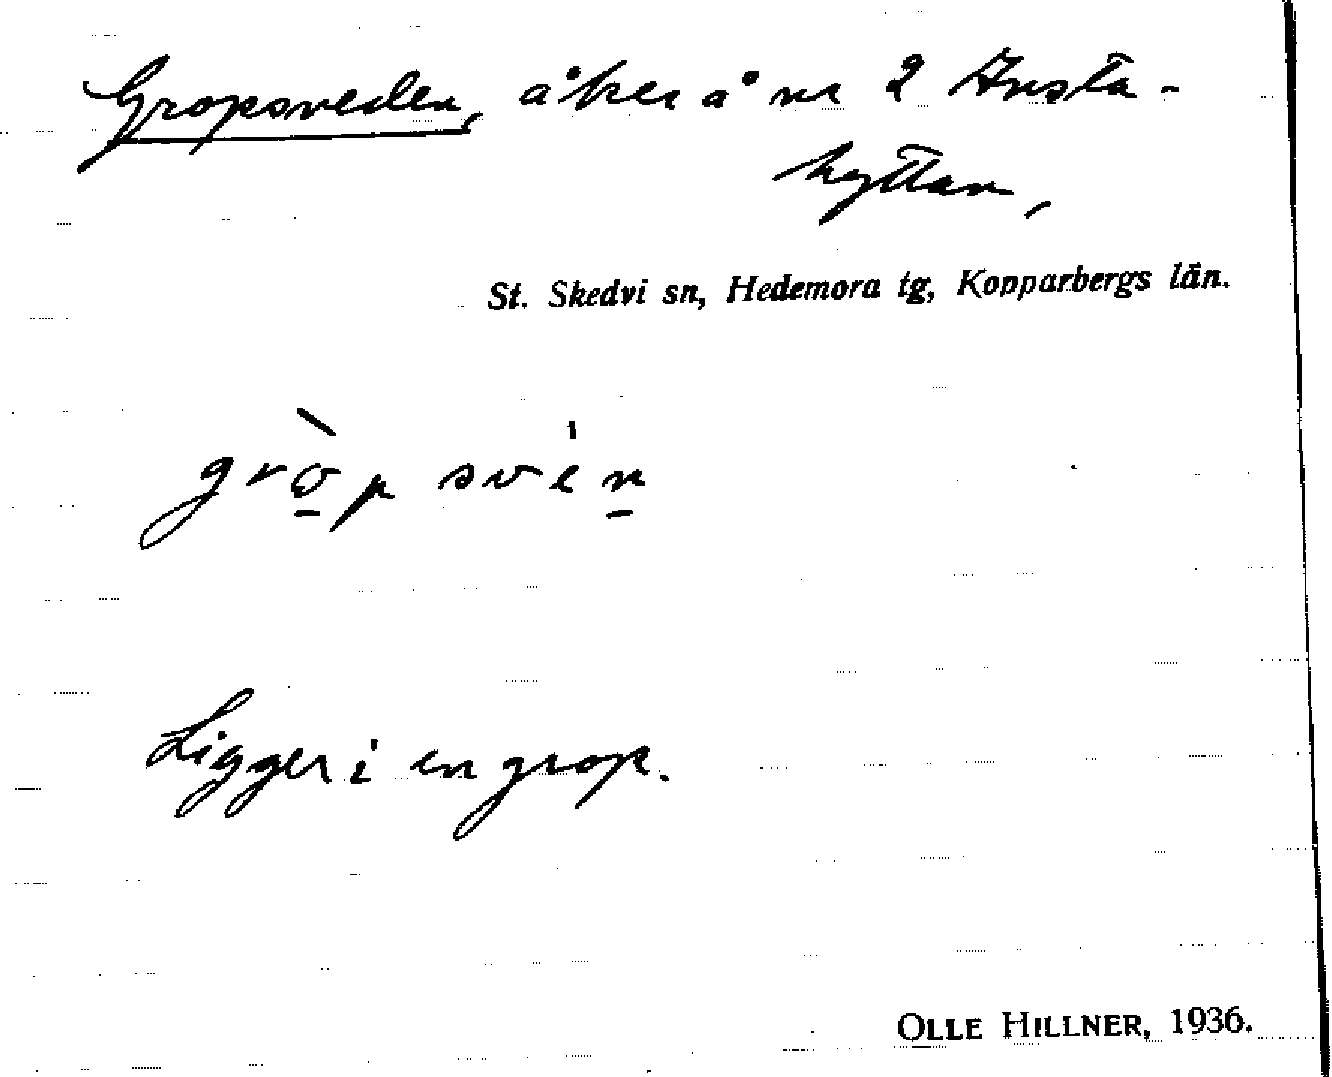 Gropsveden, åker å nr 2 Ansta-
hyttan,
St. Skedvi sn, Hedemora tg, Kopparbergs län.
grò̠p svén̠
Ligger i en grop.
OLLE HILLNER, 1936.